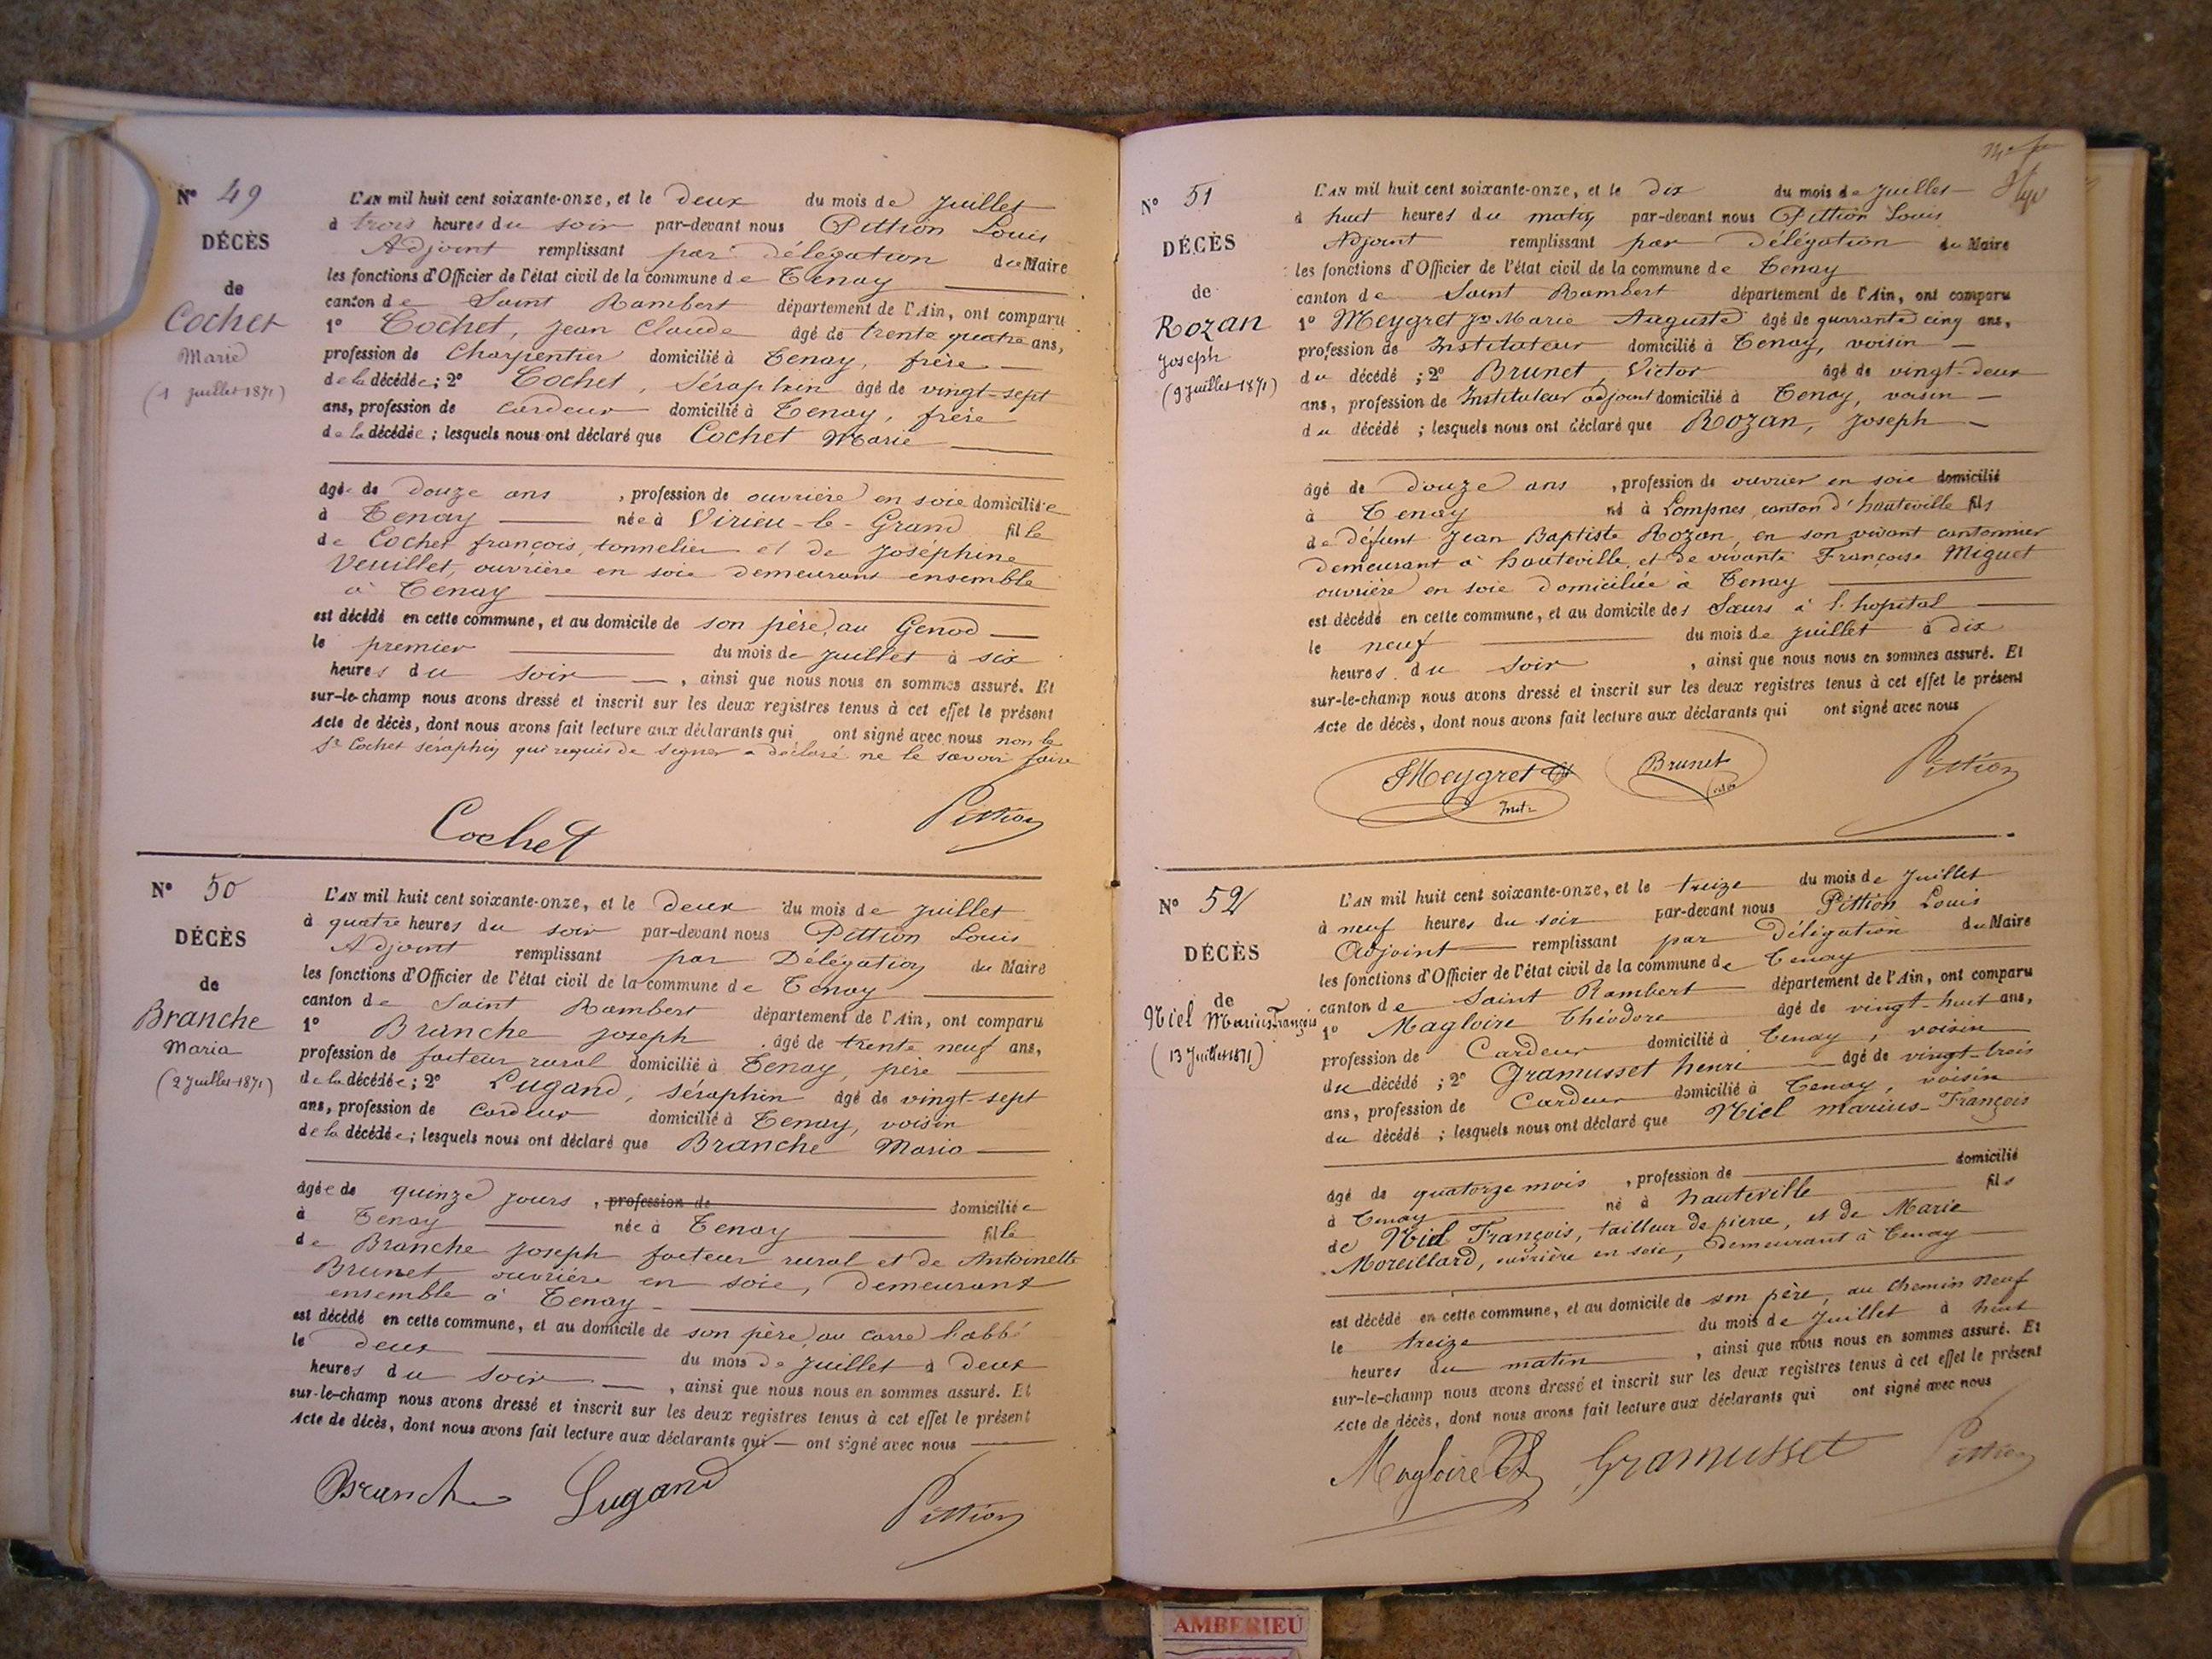 N° 49
DÉCÈS
de
Cochet
Marie
(1 juillet 1871)
L'AN mil huit cent soixante-onze, et le deux du mois de juillet
à trois heures du soir par-devant nous Pittion Louis
Adjoint remplissant par délégation du Maire
les fonctions d'Officier de l'état civil de la commune de Tenay
canton de Saint Rambert département de l'Ain, ont comparu
1° Cochet, Jean Claude âgé de trente quatre ans,
profession de Charpentier domicilié à Tenay, frère
de la décédée; 2° Cochet, Séraphin âgé de vingt-sept
ans, profession de cardeur domicilié à Tenay, frère
de la décédée; lesquels nous ont déclaré que Cochet Marie
âgée de douze ans, profession de ouvrière en soie domiciliée
à Tenay née à Virieu-le-Grand fille
de Cochet françois, tonnelier et de Joséphine
Veuillet, ouvrière en soie demeurant ensemble
à Tenay
est décédé en cette commune, et au domicile de son père, au Genod
le premier du mois de juillet à six
heures du soir, ainsi que nous nous en sommes assuré. Et
sur-le-champ nous avons dressé et inscrit sur les deux registres tenus à cet effet le présent
Acte de décès, dont nous avons fait lecture aux déclarants qui ont signé avec nous non le
Sr Cochet séraphin qui requis de signer a déclaré ne le savoir faire
Cochet Pittion
N° 50
DÉCÈS
de
Branche
Maria
(2 juillet 1871)
L'AN mil huit cent soixante-onze, et le deux du mois de juillet
à quatre heures du soir par-devant nous Pittion Louis
Adjoint remplissant par Délégation du Maire
les fonctions d'Officier de l'état civil de la commune de Tenay
canton de Saint Rambert département de l'Ain, ont comparu
1° Branche Joseph âgé de trente neuf ans,
profession de facteur rural domicilié à Tenay, père
de la décédée; 2° Lugand, Séraphin âgé de vingt-sept
ans, profession de Cardeur domicilié à Tenay, voisin
de la décédée; lesquels nous ont déclaré que Branche Maria
âgée de quinze jours, profession de domiciliée
à Tenay née à Tenay fille
de Branche Joseph facteur rural et de Antoinette
Brunet ouvrière en soie, demeurant
ensemble à Tenay
est décédé en cette commune, et au domicile de son père, au carre l'abbé
le deux du mois de juillet à deux
heures du soir, ainsi que nous nous en sommes assuré. Et
sur-le-champ nous avons dressé et inscrit sur les deux registres tenus à cet effet le présent
Acte de décès, dont nous avons fait lecture aux déclarants qui ont signé avec nous
Branche Lugand Pittion
N° 51
DÉCÈS
de
Rozan
Joseph
(9 juillet 1871)
L'AN mil huit cent soixante-onze, et le dix du mois de juillet
à huit heures du matin par-devant nous Pittion Louis
Adjoint remplissant par Délégation du Maire
les fonctions d'Officier de l'état civil de la commune de Tenay
canton de Saint Rambert département de l'Ain, ont comparu
1° Meygret Jn Marie Auguste âgé de quarante cinq ans,
profession de Instituteur domicilié à Tenay, voisin
du décédé; 2° Brunet, Victor âgé de vingt-deux
ans, profession de Instituteur adjoint domicilié à Tenay, voisin
du décédé; lesquels nous ont déclaré que Rozan, Joseph
âgé de douze ans, profession de ouvrier en soie domicilié
à Tenay né à Lompnes, canton d'hauteville fils
de défunt Jean Baptiste Rozan, en son vivant cantonnier
demeurant à hauteville, et de vivante Françoise Miguet
ouvrière en soie domiciliée à Tenay
est décédé en cette commune, et au domicile des Sœurs à l'hopital
le neuf du mois de juillet à dix
heures du soir, ainsi que nous nous en sommes assuré. Et
sur-le-champ nous avons dressé et inscrit sur les deux registres tenus à cet effet le présent
Acte de décès, dont nous avons fait lecture aux déclarants qui ont signé avec nous
Meygret Instr Brunet Pittion
N° 52
DÉCÈS
de
Niel Marius François
(13 Juillet 1871)
L'AN mil huit cent soixante-onze, et le treize du mois de juillet
à neuf heures du soir par-devant nous Pittion Louis
Adjoint remplissant par Délégation du Maire
les fonctions d'Officier de l'état civil de la commune de Tenay
canton de Saint Rambert département de l'Ain, ont comparu
1° Magloire Théodore âgé de vingt-huit ans,
profession de Cardeur domicilié à Tenay, voisin
du décédé; 2° Gramusset henri âgé de vingt-trois
ans, profession de Cardeur domicilié à Tenay, voisin
du décédé; lesquels nous ont déclaré que Niel Marius-François
âgé de quatorze mois, profession de domicilié
à Tenay né à hauteville fils
de Niel François, tailleur de pierre, et de Marie
Moreillard, ouvrière en soie, demeurant à Tenay
est décédé en cette commune, et au domicile de son père, au chemin neuf
le treize du mois de juillet à huit
heures du matin, ainsi que nous nous en sommes assuré. Et
sur-le-champ nous avons dressé et inscrit sur les deux registres tenus à cet effet le présent
Acte de décès, dont nous avons fait lecture aux déclarants qui ont signé avec nous
Magloire Gramusset Pittion
AMBERIEU